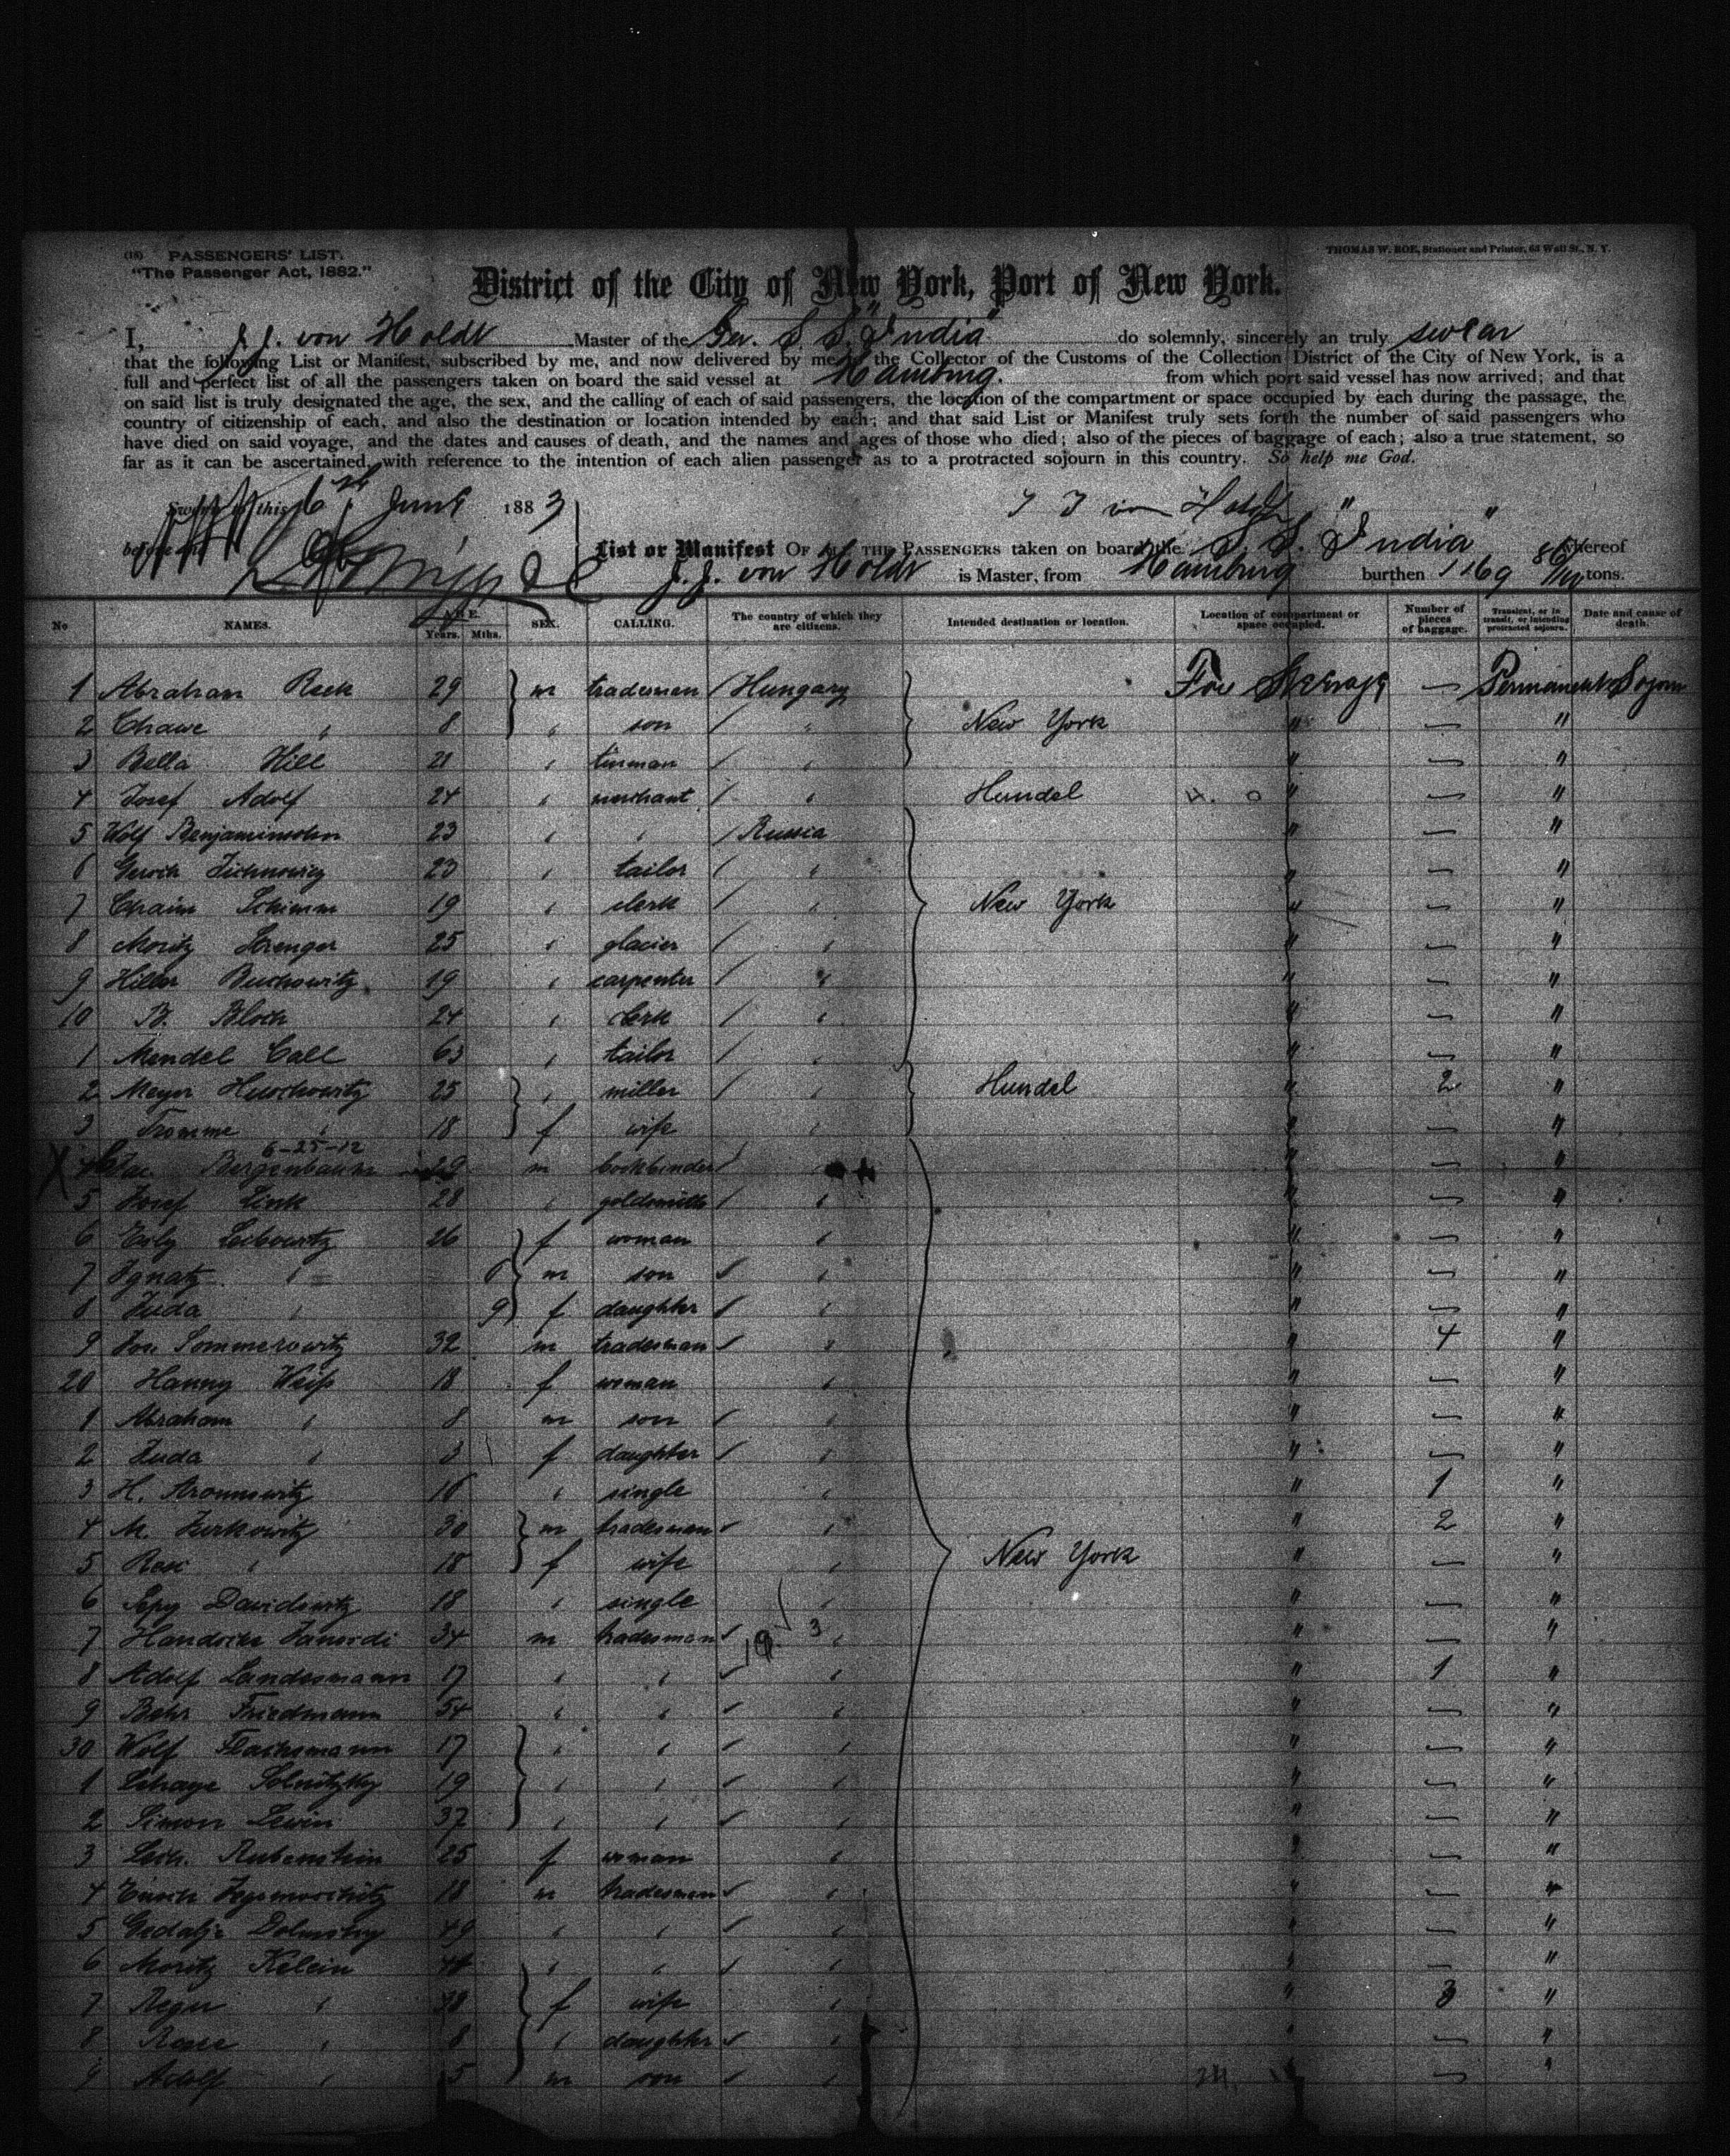 (18) PASSENGERS' LIST.
"The Passenger Act, 1882."
THOMAS W. ROE, Stationer and Printer, 63 Wall St., N. Y.
District of the City of New York, Port of New York.
I, J. J. von Holdt Master of the Ger. S. S. "India" do solemnly, sincerely an truly swear
that the following List or Manifest, subscribed by me, and now delivered by me to the Collector of the Customs of the Collection District of the City of New York, is a
full and perfect list of all the passengers taken on board the said vessel at Hamburg. from which port said vessel has now arrived; and that
on said list is truly designated the age, the sex, and the calling of each of said passengers, the location of the compartment or space occupied by each during the passage, the
country of citizenship of each, and also the destination or location intended by each; and that said List or Manifest truly sets forth the number of said passengers who
have died on said voyage, and the dates and causes of death, and the names and ages of those who died; also of the pieces of baggage of each; also a true statement, so
far as it can be ascertained, with reference to the intention of each alien passenger as to a protracted sojourn in this country. So help me God.
Sworn to this 6th June 1883
before me
List or Manifest OF ALL THE PASSENGERS taken on board the S. S. "India" whereof
J. J. von Holdt is Master, from Hamburg burthen 1169 tons.
No NAMES. AGE. Years. Mths. SEX. CALLING. The country of which they are citizens. Intended destination or location. Location of compartment or space occupied. Number of pieces of baggage. Transient, or in transit, or intending protracted sojourn. Date and cause of death.
1 Abraham Reck 29 m tradesman / Hungary Steerage —
2 Chawe " 8 " son / " New York " — "
3 Bella Hill 21 " tinman / " " — "
4 Josef Adolf 24 " merchant / " Hundel " — "
5 Wolf Benjaminsohn 23 " " / Russia " — "
6 23 " tailor / " " — "
7 Chaim Schimm 19 " clerk / " New York " — "
8 Moritz 25 " glacier / " " — "
9 19 " carpenter / " " — "
10 B. Bloch 24 " clerk / " " — "
1 Mendel Call 63 " tailor / " " — "
2 Meyer 25 " miller / " Hundel " 2 "
3 Fromme " 18 f wife " " — "
6-25-12
4 Bergenbaum 29 m bookbinder / " — "
5 Josef Link 28 " goldsmith / " " — "
6 Leibowitz 26 f woman " " — "
7 Ignatz " 6 m son / " " — "
8 Juda " 9 f daughter / " " — "
9 Jos. Sommerowitz 32 m tradesman / " " 4 "
20 Hanny Weiss 18 f woman " " — "
1 Abraham " 8 m son / " " — "
2 Juda " 3 f daughter / " " — "
3 H. 16 " single " " 1 "
4 M. Zurkowitz 30 m tradesman / " " 2 "
5 Resi " 18 f wife " New York " — "
6 Davidowitz 18 " single " " — "
7 34 m tradesman / " " — "
8 Adolf Landesmann 17 " " / " " 1 "
9 Behr Friedmann 54 " " / " " — "
30 Wolf Flachsmann 17 " " / " " — "
1 19 " " / " " — "
2 Simon Lewin 37 " " / " " — "
3 Rubenstein 25 f woman " " — "
4 18 m tradesman / " " — "
5 Gedalje 49 " " / " " — "
6 Moritz Kelein 44 " " / " " — "
7 " 38 f wife " " 3 "
8 Rose " 8 " daughter / " " — "
9 Adolf " 5 m son / " " — "